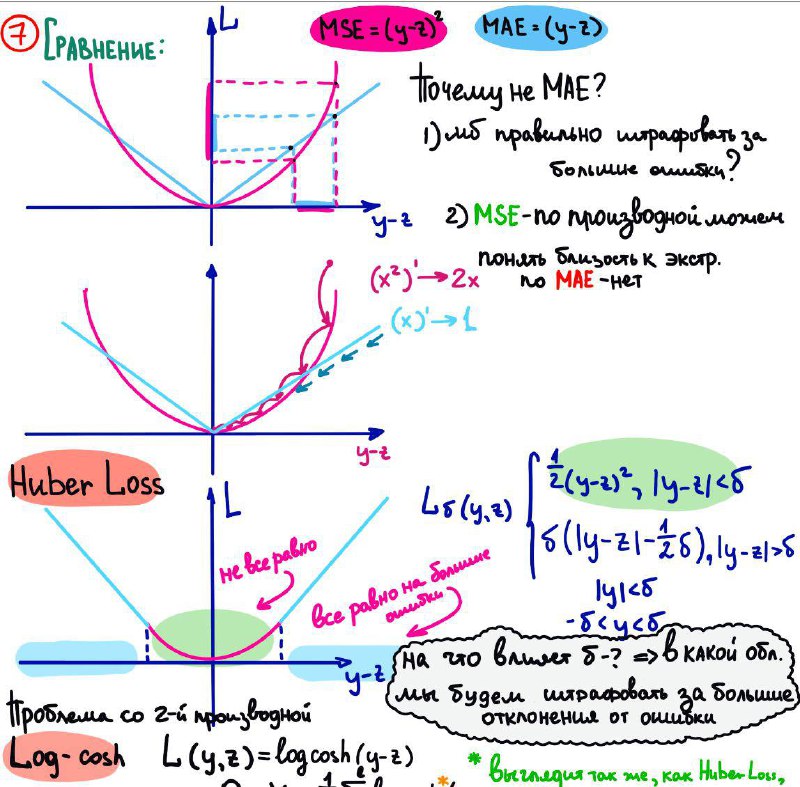 7 Сравнение:
L
MSE = (y-z)²
MAE = (y-z)
y-z
Почему не MAE?
1) мб правильно штрафовать за
большие ошибки?
2) MSE - по производной можем
понять близость к экстр.
по MAE - нет
(x²)' → 2x
(x)' → 1
y-z
Huber Loss
L
не все равно
все равно на большие
ошибки
y-z
Lδ(y,z)
1/2(y-z)², |y-z|<δ
δ(|y-z|-1/2δ), |y-z|>δ
|y|<δ
-δ<y<δ
на что влияет δ-? => в какой обл.
мы будем штрафовать за большие
отклонения от ошибки
Проблема со 2-й производной
Log-cosh L(y,z) = log cosh(y-z)
* выглядит так же, как Huber Loss,